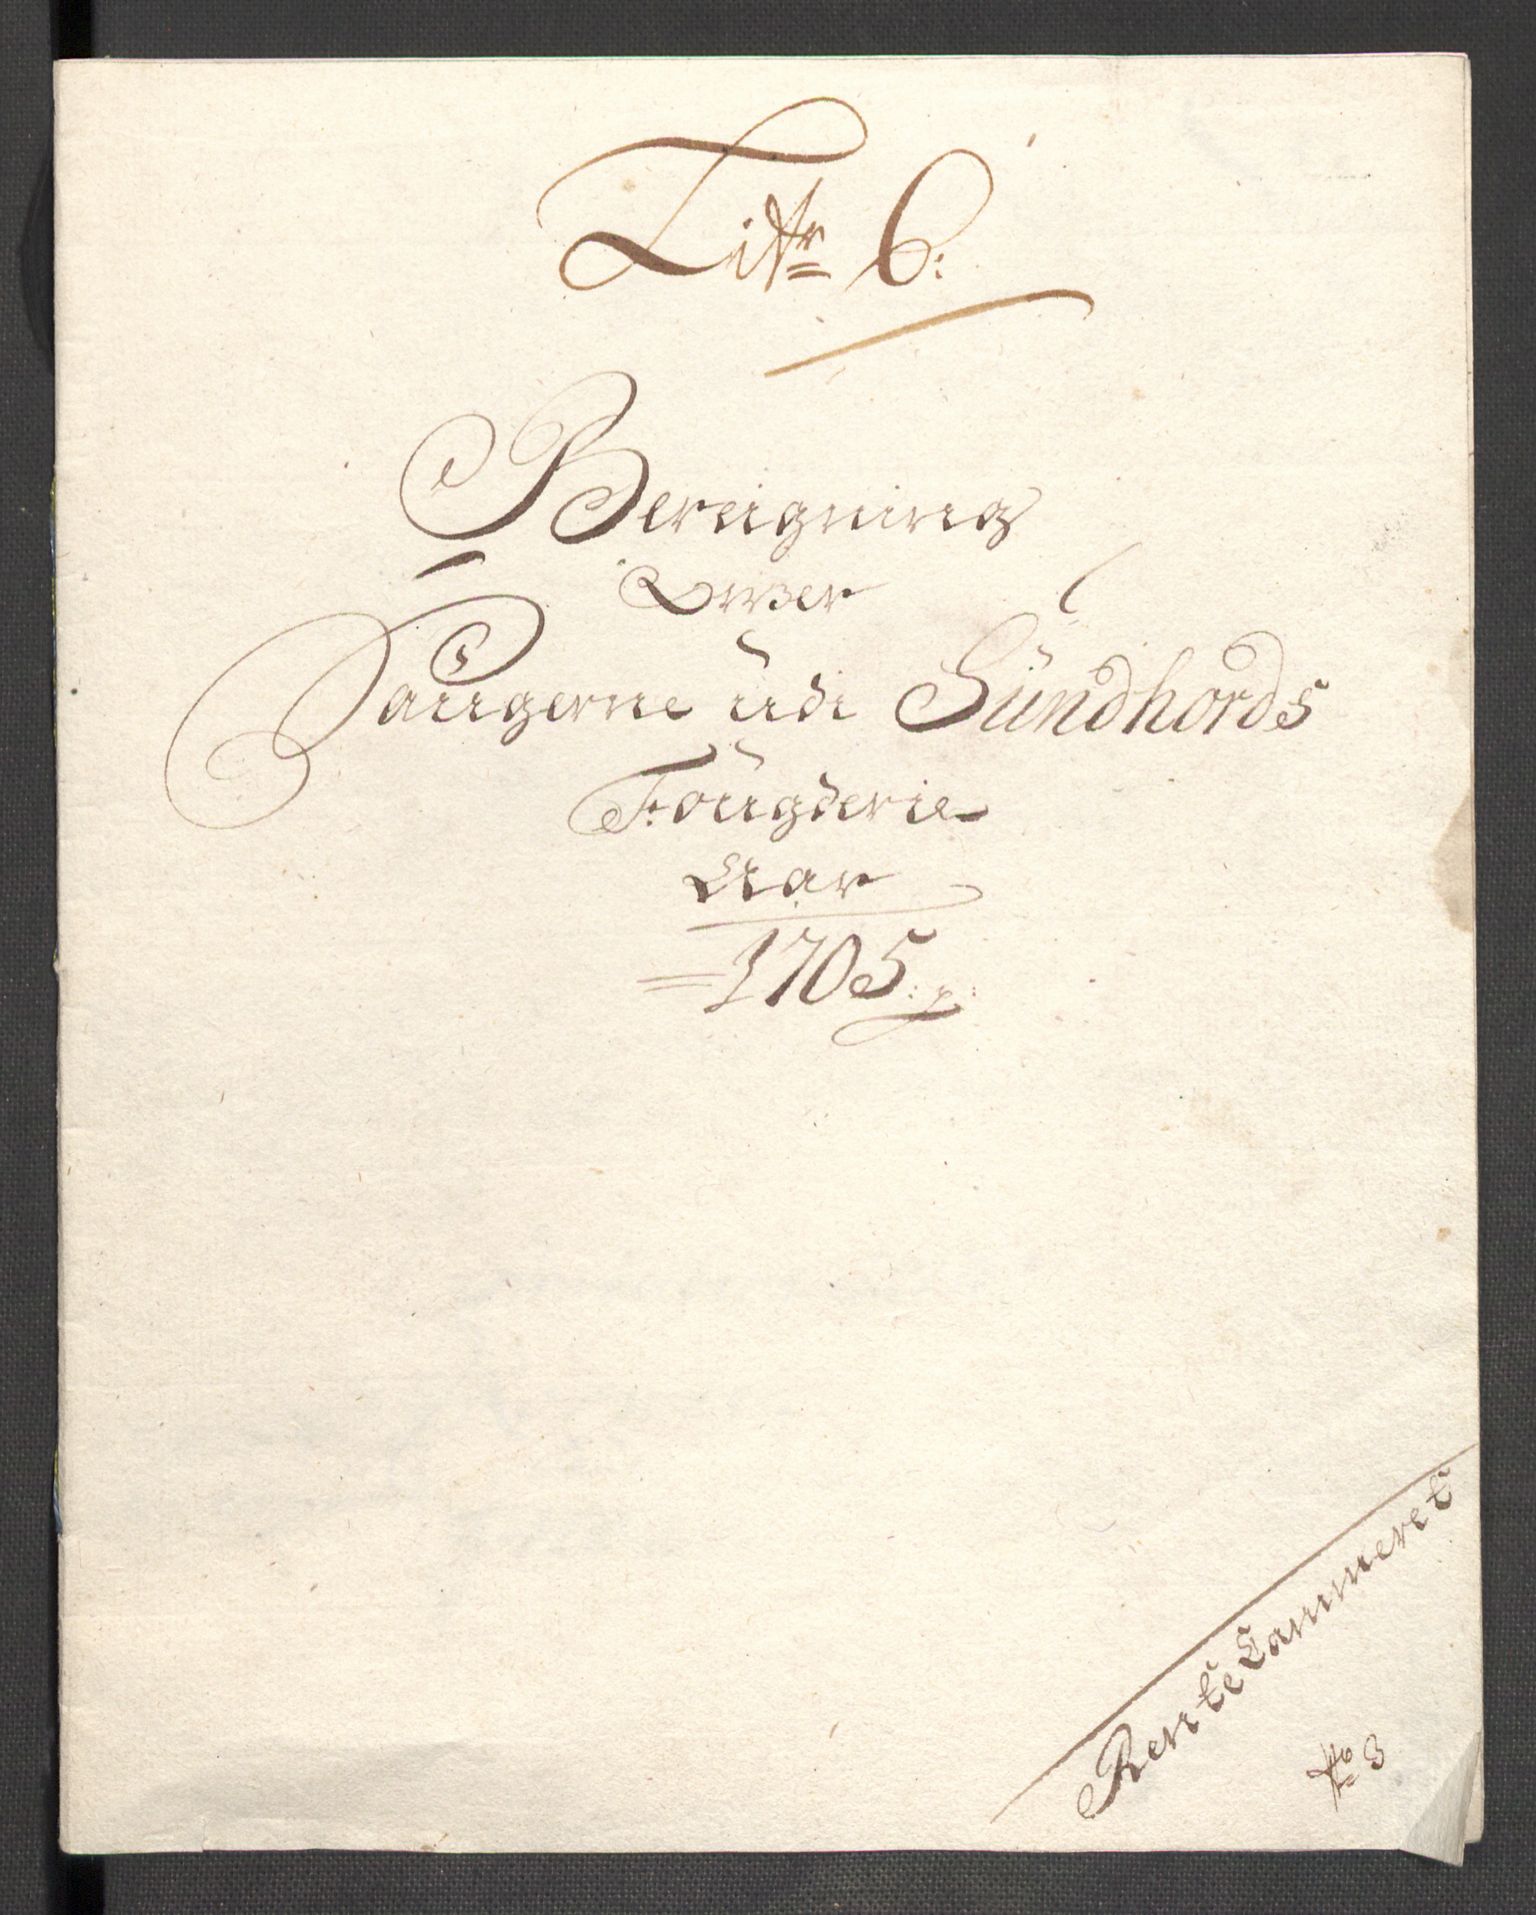 Littr 6:
Bereigning
Owver
Saugerne udi Sundhords
Fougderie
Aar
1705.
RenteCammeret
No 3